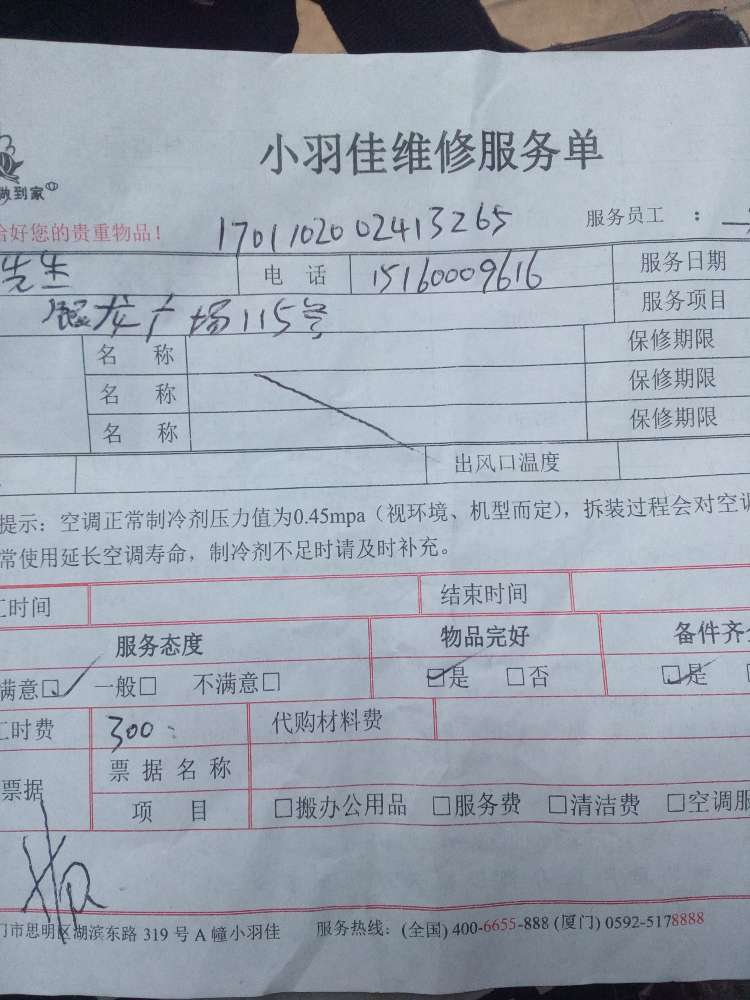 小羽佳维修服务单
做到家
恰好您的贵重物品！ 1701102002413265 服务员工 ：
先生 电 话 15160009616 服务日期
广场115号 服务项目
名 称 保修期限
名 称 保修期限
名 称 保修期限
出风口温度
提示：空调正常制冷剂压力值为0.45mpa（视环境、机型而定），拆装过程会对空调
常使用延长空调寿命，制冷剂不足时请及时补充。
工时间 结束时间
服务态度 物品完好 备件齐全
满意☑ 一般□ 不满意□ ☑是 □否 ☑是
工时费 300 代购材料费
票据 票 据 名 称
项 目 □搬办公用品 □服务费 □清洁费 □空调服
门市思明区湖滨东路 319 号 A 幢小羽佳 服务热线：(全国) 400-6655-888 (厦门) 0592-5178888